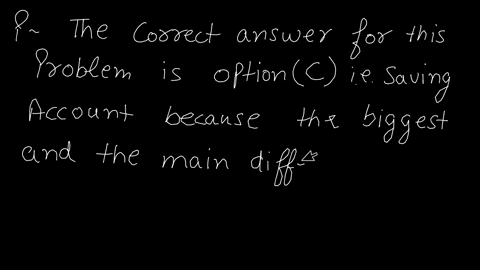 The correct answer for this
Problem is option (C) i.e. Saving
Account because the biggest
and the main diff